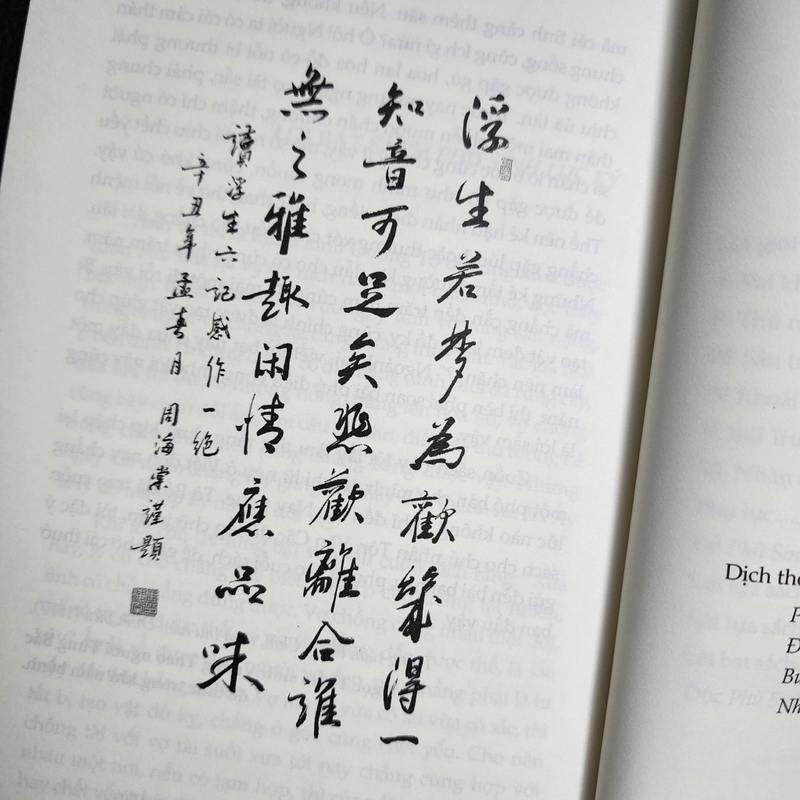 浮生若梦為歡幾得一
知音可足矣悲歡離合誰
無之雅趣闲情應品味
讀浮生六記感作一绝
辛丑年孟春月周海棠謹題
Dịch the
F
Đ
Bu
Nh